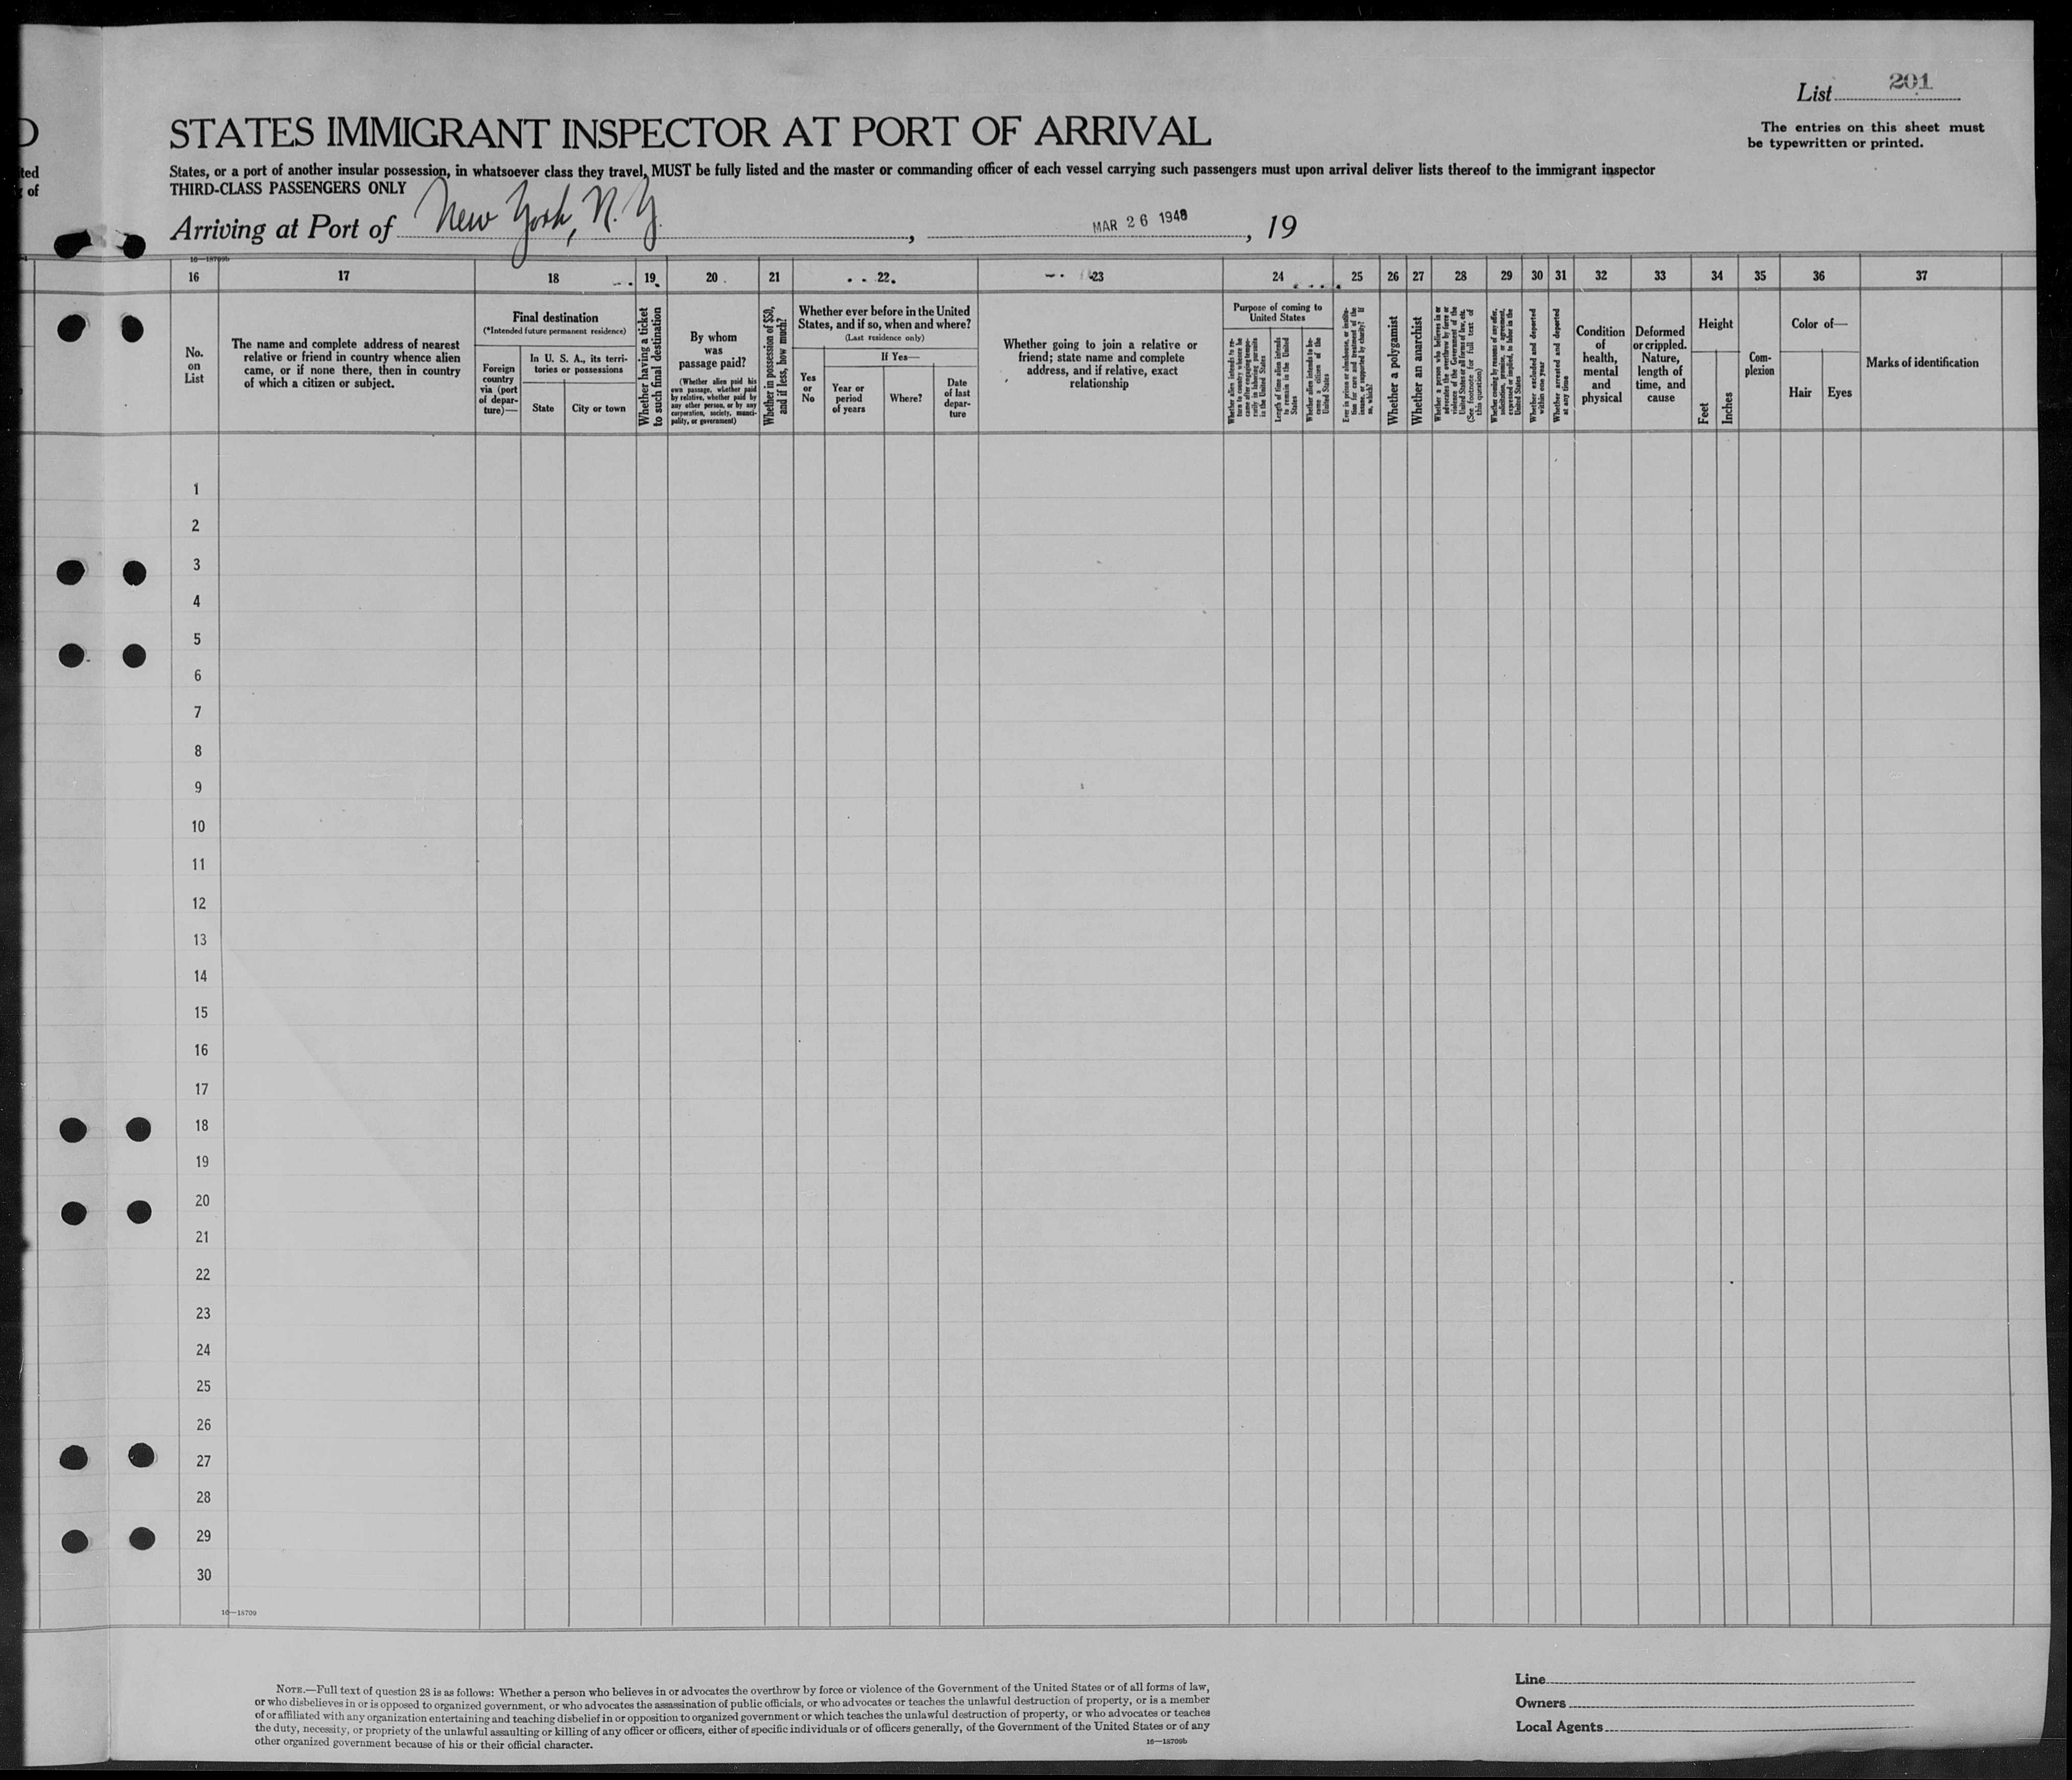 List 201
D
STATES IMMIGRANT INSPECTOR AT PORT OF ARRIVAL
The entries on this sheet must
be typewritten or printed.
ted
States, or a port of another insular possession, in whatsoever class they travel, MUST be fully listed and the master or commanding officer of each vessel carrying such passengers must upon arrival deliver lists thereof to the immigrant inspector
of
THIRD-CLASS PASSENGERS ONLY
Arriving at Port of New York, N.Y. , MAR 26 1948 , 19
16—18709b
16 17 18 19 20 21 22 23 24 25 26 27 28 29 30 31 32 33 34 35 36 37
No.
on
List
The name and complete address of nearest
relative or friend in country whence alien
came, or if none there, then in country
of which a citizen or subject.
Final destination
(*Intended future permanent residence)
Foreign
country
via (port
of depar-
ture)—
In U. S. A., its terri-
tories or possessions
State
City or town
Whether having a ticket
to such final destination
By whom
was
passage paid?
(Whether alien paid his
own passage, whether paid
by relative, whether paid by
any other person, or by any
corporation, society, munici-
pality, or government)
Whether in possession of $50,
and if less, how much?
Whether ever before in the United
States, and if so, when and where?
(Last residence only)
Yes
or
No
If Yes—
Year or
period
of years
Where?
Date
of last
depar-
ture
Whether going to join a relative or
friend; state name and complete
address, and if relative, exact
relationship
Purpose of coming to
United States
Whether alien intends to re-
turn to country whence he
came after engaging tempo-
rarily in laboring pursuits
in the United States
Length of time alien intends
to remain in the United
States
Whether alien intends to be-
come a citizen of the
United States
Ever in prison or almshouse, or institu-
tion for care and treatment of the
insane, or supported by charity? If
so, which?
Whether a polygamist
Whether an anarchist
Whether a person who believes in or
advocates the overthrow by force or
violence of the Government of the
United States or all forms of law, etc.
(See footnote for full text of
this question)
Whether coming by reasons of any offer,
solicitation, promise, or agreement,
expressed or implied, to labor in the
United States
Whether excluded and deported
within one year
Whether arrested and deported
at any time
Condition
of
health,
mental
and
physical
Deformed
or crippled.
Nature,
length of
time, and
cause
Height
Feet
Inches
Com-
plexion
Color of—
Hair
Eyes
Marks of identification
1
2
3
4
5
6
7
8
9
10
11
12
13
14
15
16
17
18
19
20
21
22
23
24
25
26
27
28
29
30
16—18709
NOTE.—Full text of question 28 is as follows: Whether a person who believes in or advocates the overthrow by force or violence of the Government of the United States or of all forms of law,
or who disbelieves in or is opposed to organized government, or who advocates the assassination of public officials, or who advocates or teaches the unlawful destruction of property, or is a member
of or affiliated with any organization entertaining and teaching disbelief in or opposition to organized government or which teaches the unlawful destruction of property, or who advocates or teaches
the duty, necessity, or propriety of the unlawful assaulting or killing of any officer or officers, either of specific individuals or of officers generally, of the Government of the United States or of any
other organized government because of his or their official character.
16—18709b
Line
Owners
Local Agents